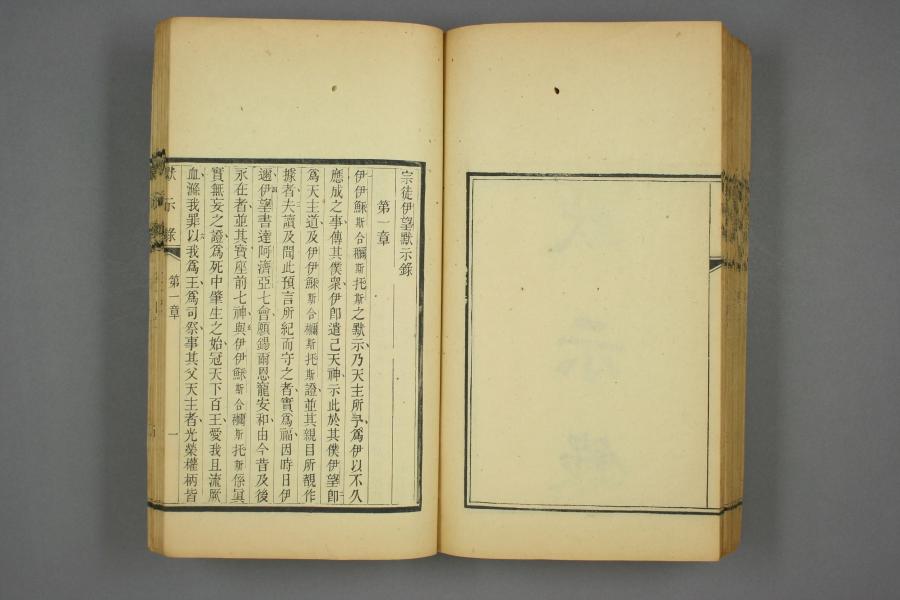 宗徒伊望默示錄
第一章
伊伊穌斯合襧斯托斯之默示乃天主所予爲伊以不久
應成之事傳其僕衆伊卽遣己天神示此於其僕伊望卽
爲天主道及伊伊穌斯合襧斯托斯證並其親目所覩作
據者夫讀及聞此預言所紀而守之者實爲福因時日伊
邇伊望書達阿濟亞七會願錫爾恩寵安和由今昔及後
永在者並其寶座前七神與伊伊穌斯合襧斯托斯係眞
實無妄之證爲死中肇生之始冠天下百王愛我且流厥
血滌我罪以我爲王爲司祭事其父天主者光榮權柄皆
默示錄 第一章 一